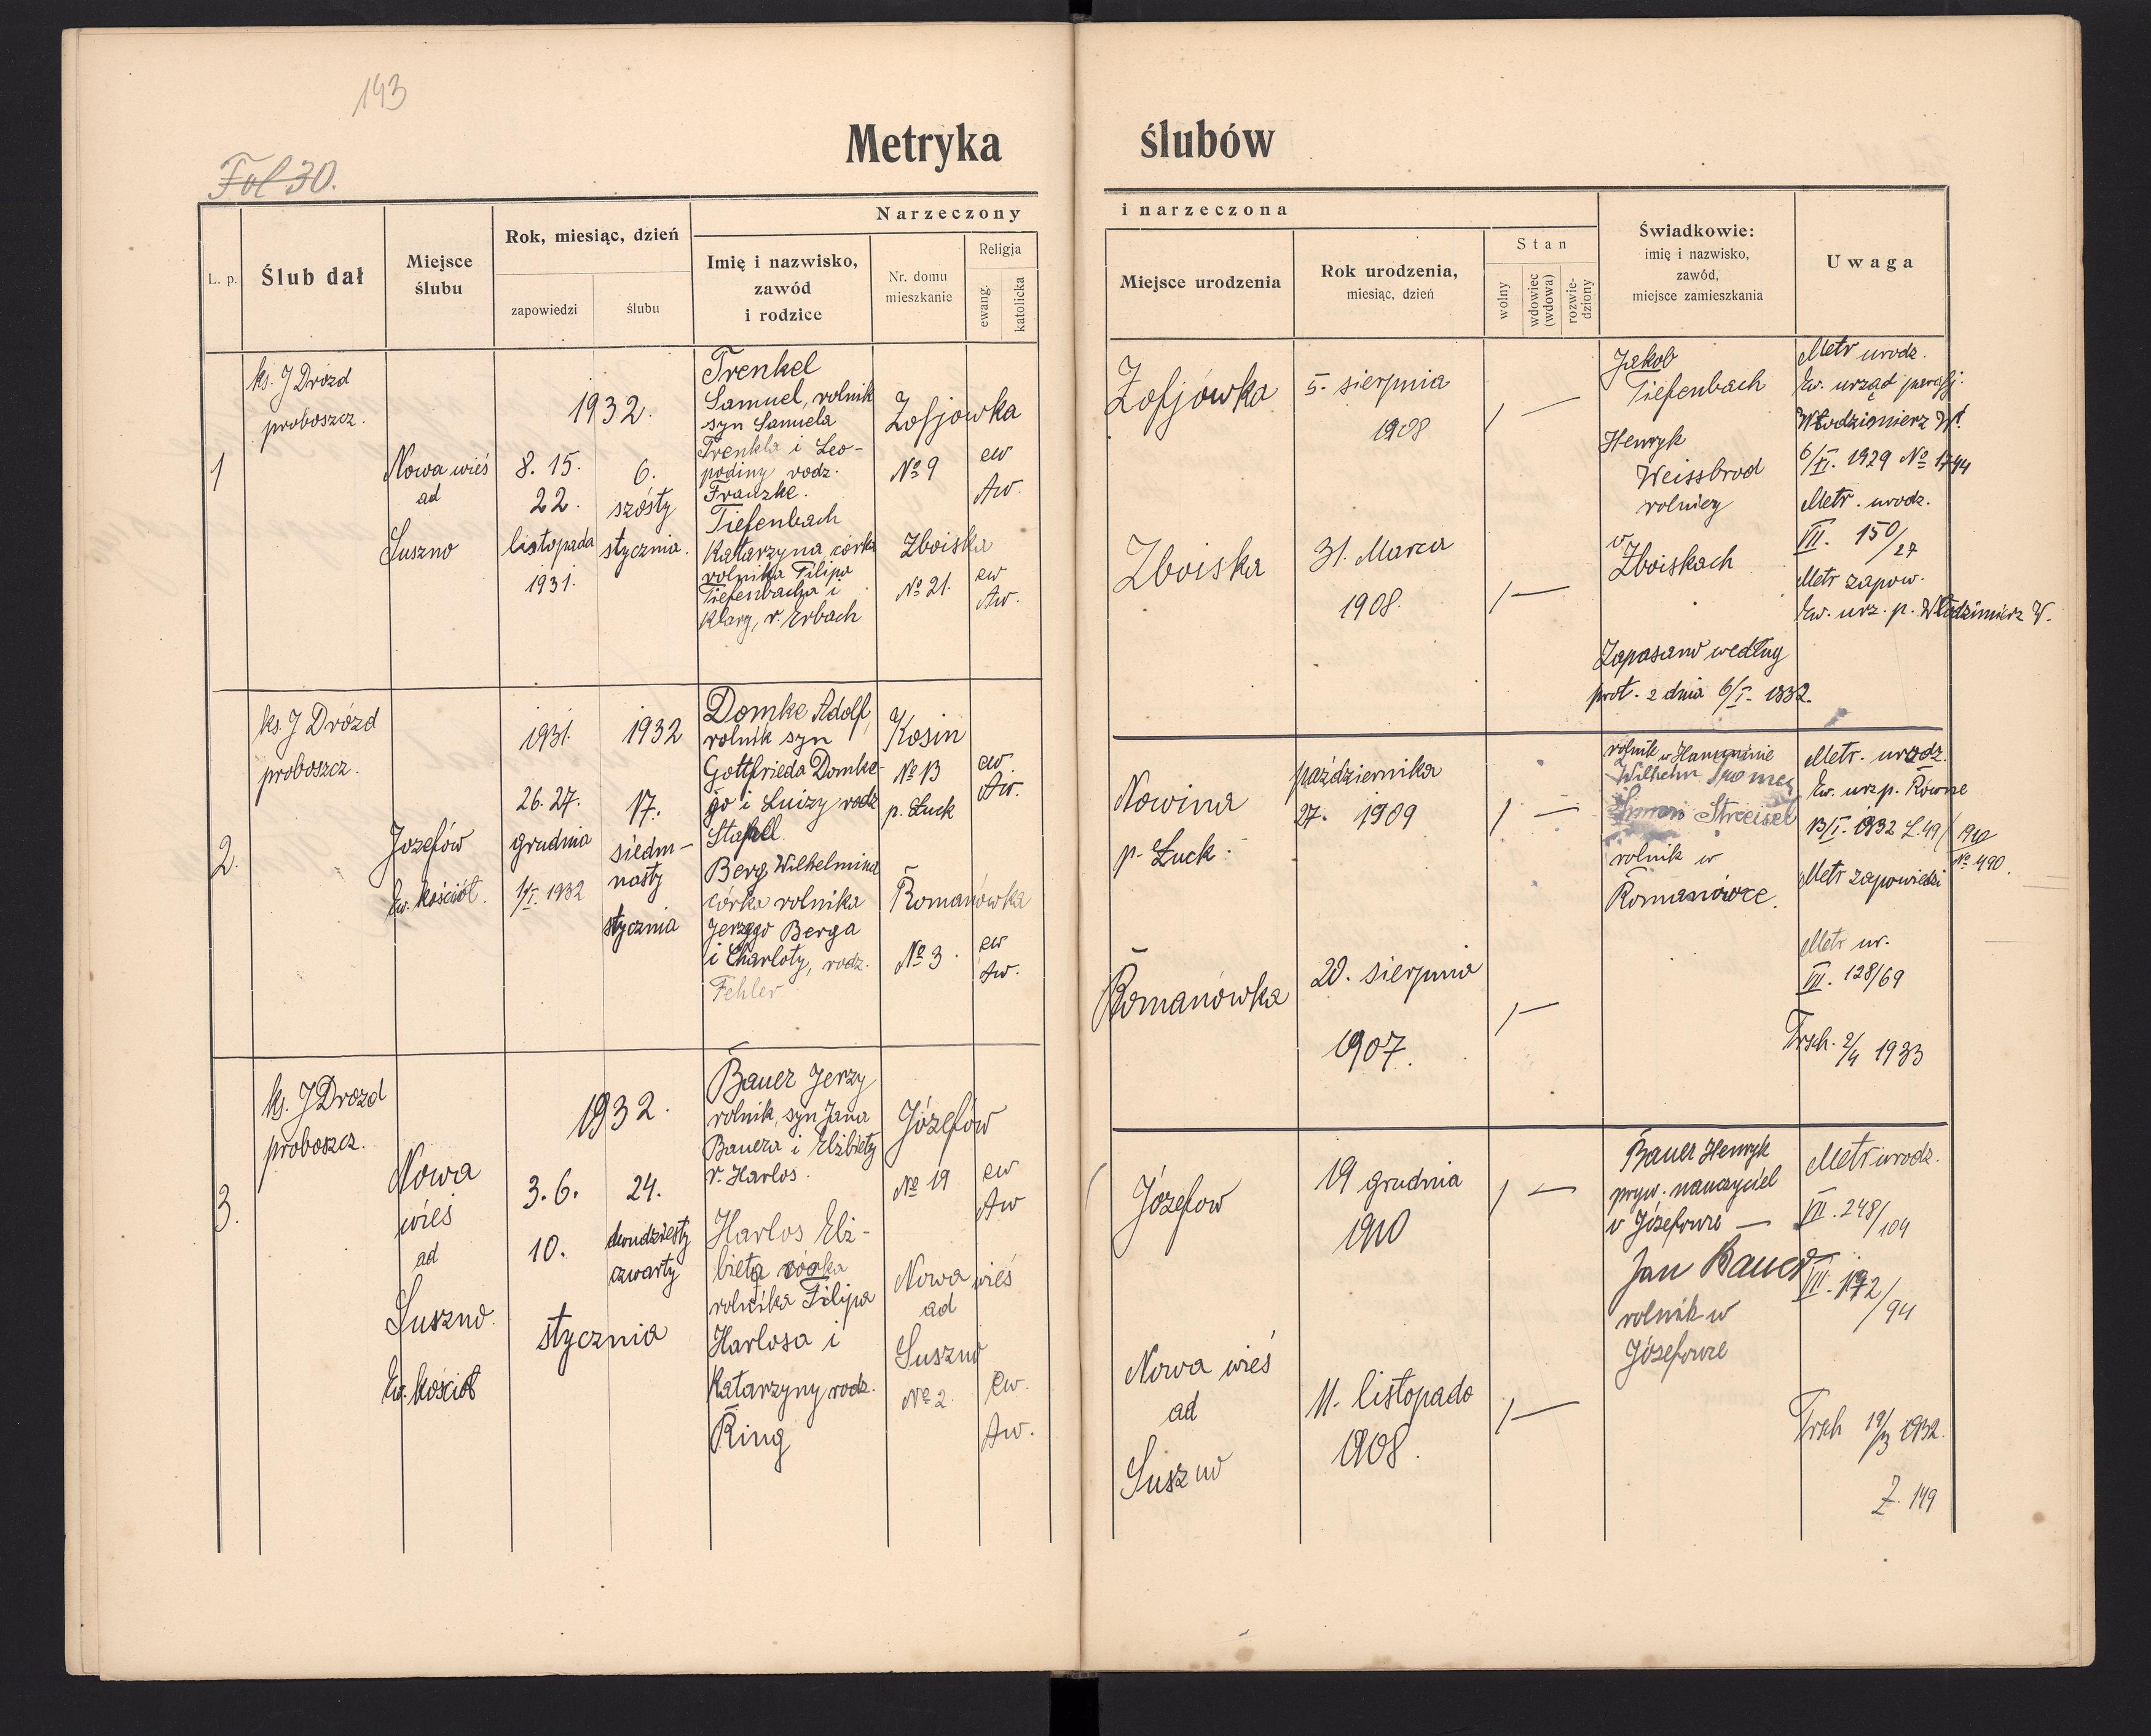 143
Fol 30.
Metryka ślubów
L. p.
Ślub dał
Miejsce
ślubu
Rok, miesiąc, dzień
zapowiedzi
ślubu
Narzeczony
Imię i nazwisko,
zawód
i rodzice
Nr. domu
mieszkanie
Religja
ewang.
katolicka
i narzeczona
Miejsce urodzenia
Rok urodzenia,
miesiąc, dzień
Stan
wolny
wdowiec
(wdowa)
rozwie-
dziony
Świadkowie:
imię i nazwisko,
zawód,
miejsce zamieszkania
Uwaga
1
ks. J Drozd
proboszcz.
Nowa wieś
ad
Suszno
1932.
8. 15.
22.
listopada
1931.
6.
szósty
stycznia.
Trenkel
Samuel, rolnik
syn Samuela
Trenkla i Leo-
podiny rodz.
Franzke.
Tiefenbach
Katarzyna córka
rolnika Filipa
Tiefenbacha i
Klary, r. Erbach
Zofjowka
№ 9
ew
Aw.
Zboiska
№ 21.
ew
Aw.
Zofjówka
5. sierpnia
1908
1 —
Zboiska
31. Marca
1908.
1 —
Jakob
Tiefenbach
Henryk
Weissbrod
rolnicy
w
Zboiskach
Zapasano według
prot. z dnia 6/I. 1832.
Metr urodz.
Ew. urząd parafj.
Włodzimierz W.
6/XI. 1929 № 1744
Metr. urodz.
VII. 150/27
Metr zapow.
Ew. urz. p. Włodzimierz W.
2.
ks. J Drózd
proboszcz.
Jozefów
Ew. Kościół.
1931.
26. 27.
grudnia
1/I. 1932
1932
17.
siedm-
nasty
stycznia
Domke Adolf,
rolnik syn
Gottfrieda Domke-
go i Luizy rodz
Berg Wilhelmina
córka rolnika
Jerzego Berga
i Charloty, rodz.
Fehler
Kosin
№ 13
p. Łuck
ew
Aw.
Romanówka
№ 3.
ew
Aw.
Nowina
p. Łuck.
października
27. 1909
1 —
Romanówka
20. sierpnia
1907.
1 —
rolnik w
Wilhelm
Streisel
rolnik w
Romanówce.
Metr. urodz.
Ew. urz p. Równe
13/I. 1932 L. 49/
№ 490.
Metr zapowiedzi
Metr ur.
VII. 128/69
Trsch. 2/4 1933
3.
ks. J Drozd
proboszcz.
Nowa
wieś
ad
Suszno.
Ew. kościół
1932.
3. 6.
10.
24.
dwudziesty
czwarty
stycznia
Bauer Jerzy
rolnik, syn Jana
Bauera i Elżbiety
r. Harlos.
Harlos Elż-
bieta córka
rolnika Filipa
Harlosa i
Katarzyny rodz.
Ring
Józefów
№ 19
ew
Aw
Nowa wieś
ad
Suszno
№ 2.
ew.
Aw.
Józefow
19 grudnia
1910
1 —
Nowa wieś
ad
Suszno
11. listopada
1908.
1 —
Bauer Henryk
pryw. nauczyciel
w Józefowie —
Jan Bauer
rolnik w
Józefowie
Metr urodz.
VII. 248/104
VII. 192/94
Trsch 19/3 1932.
Z. 149